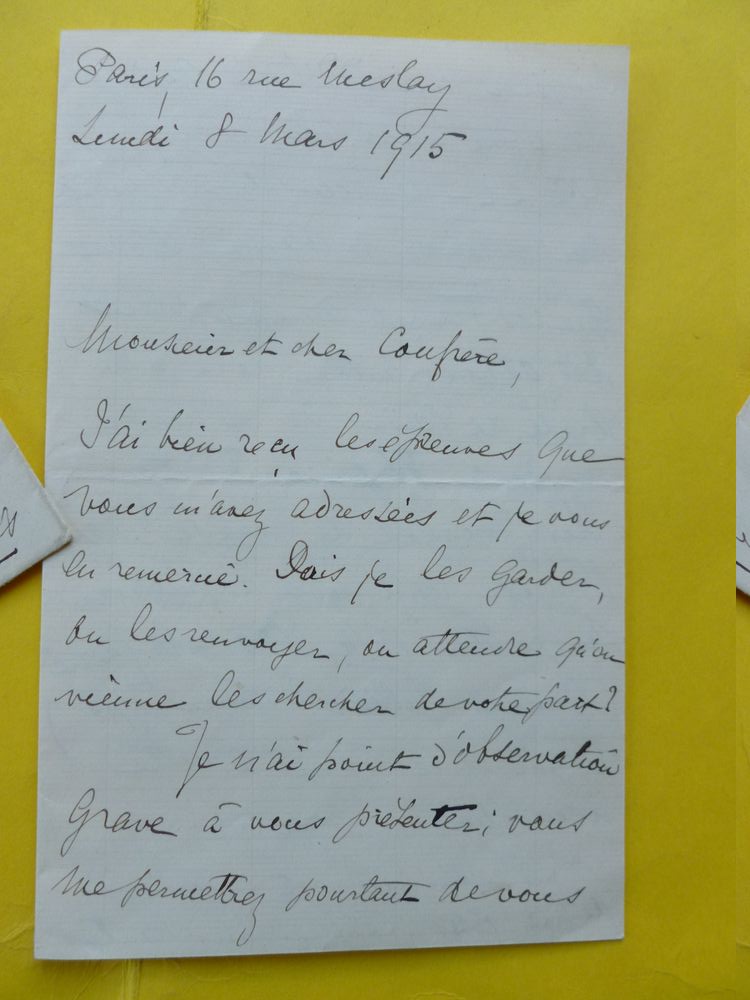 Paris, 16 rue Meslay
Lundi 8 Mars 1915
Monsieur et cher Confrère,
J'ai bien reçu les épreuves que
vous m'avez adressées et je vous
en remercie. Dois je les garder,
ou les renvoyer, ou attendre qu'on
vienne les chercher de votre part?
Je n'ai point d'observation
grave à vous présenter; vous
me permettrez pourtant de vous